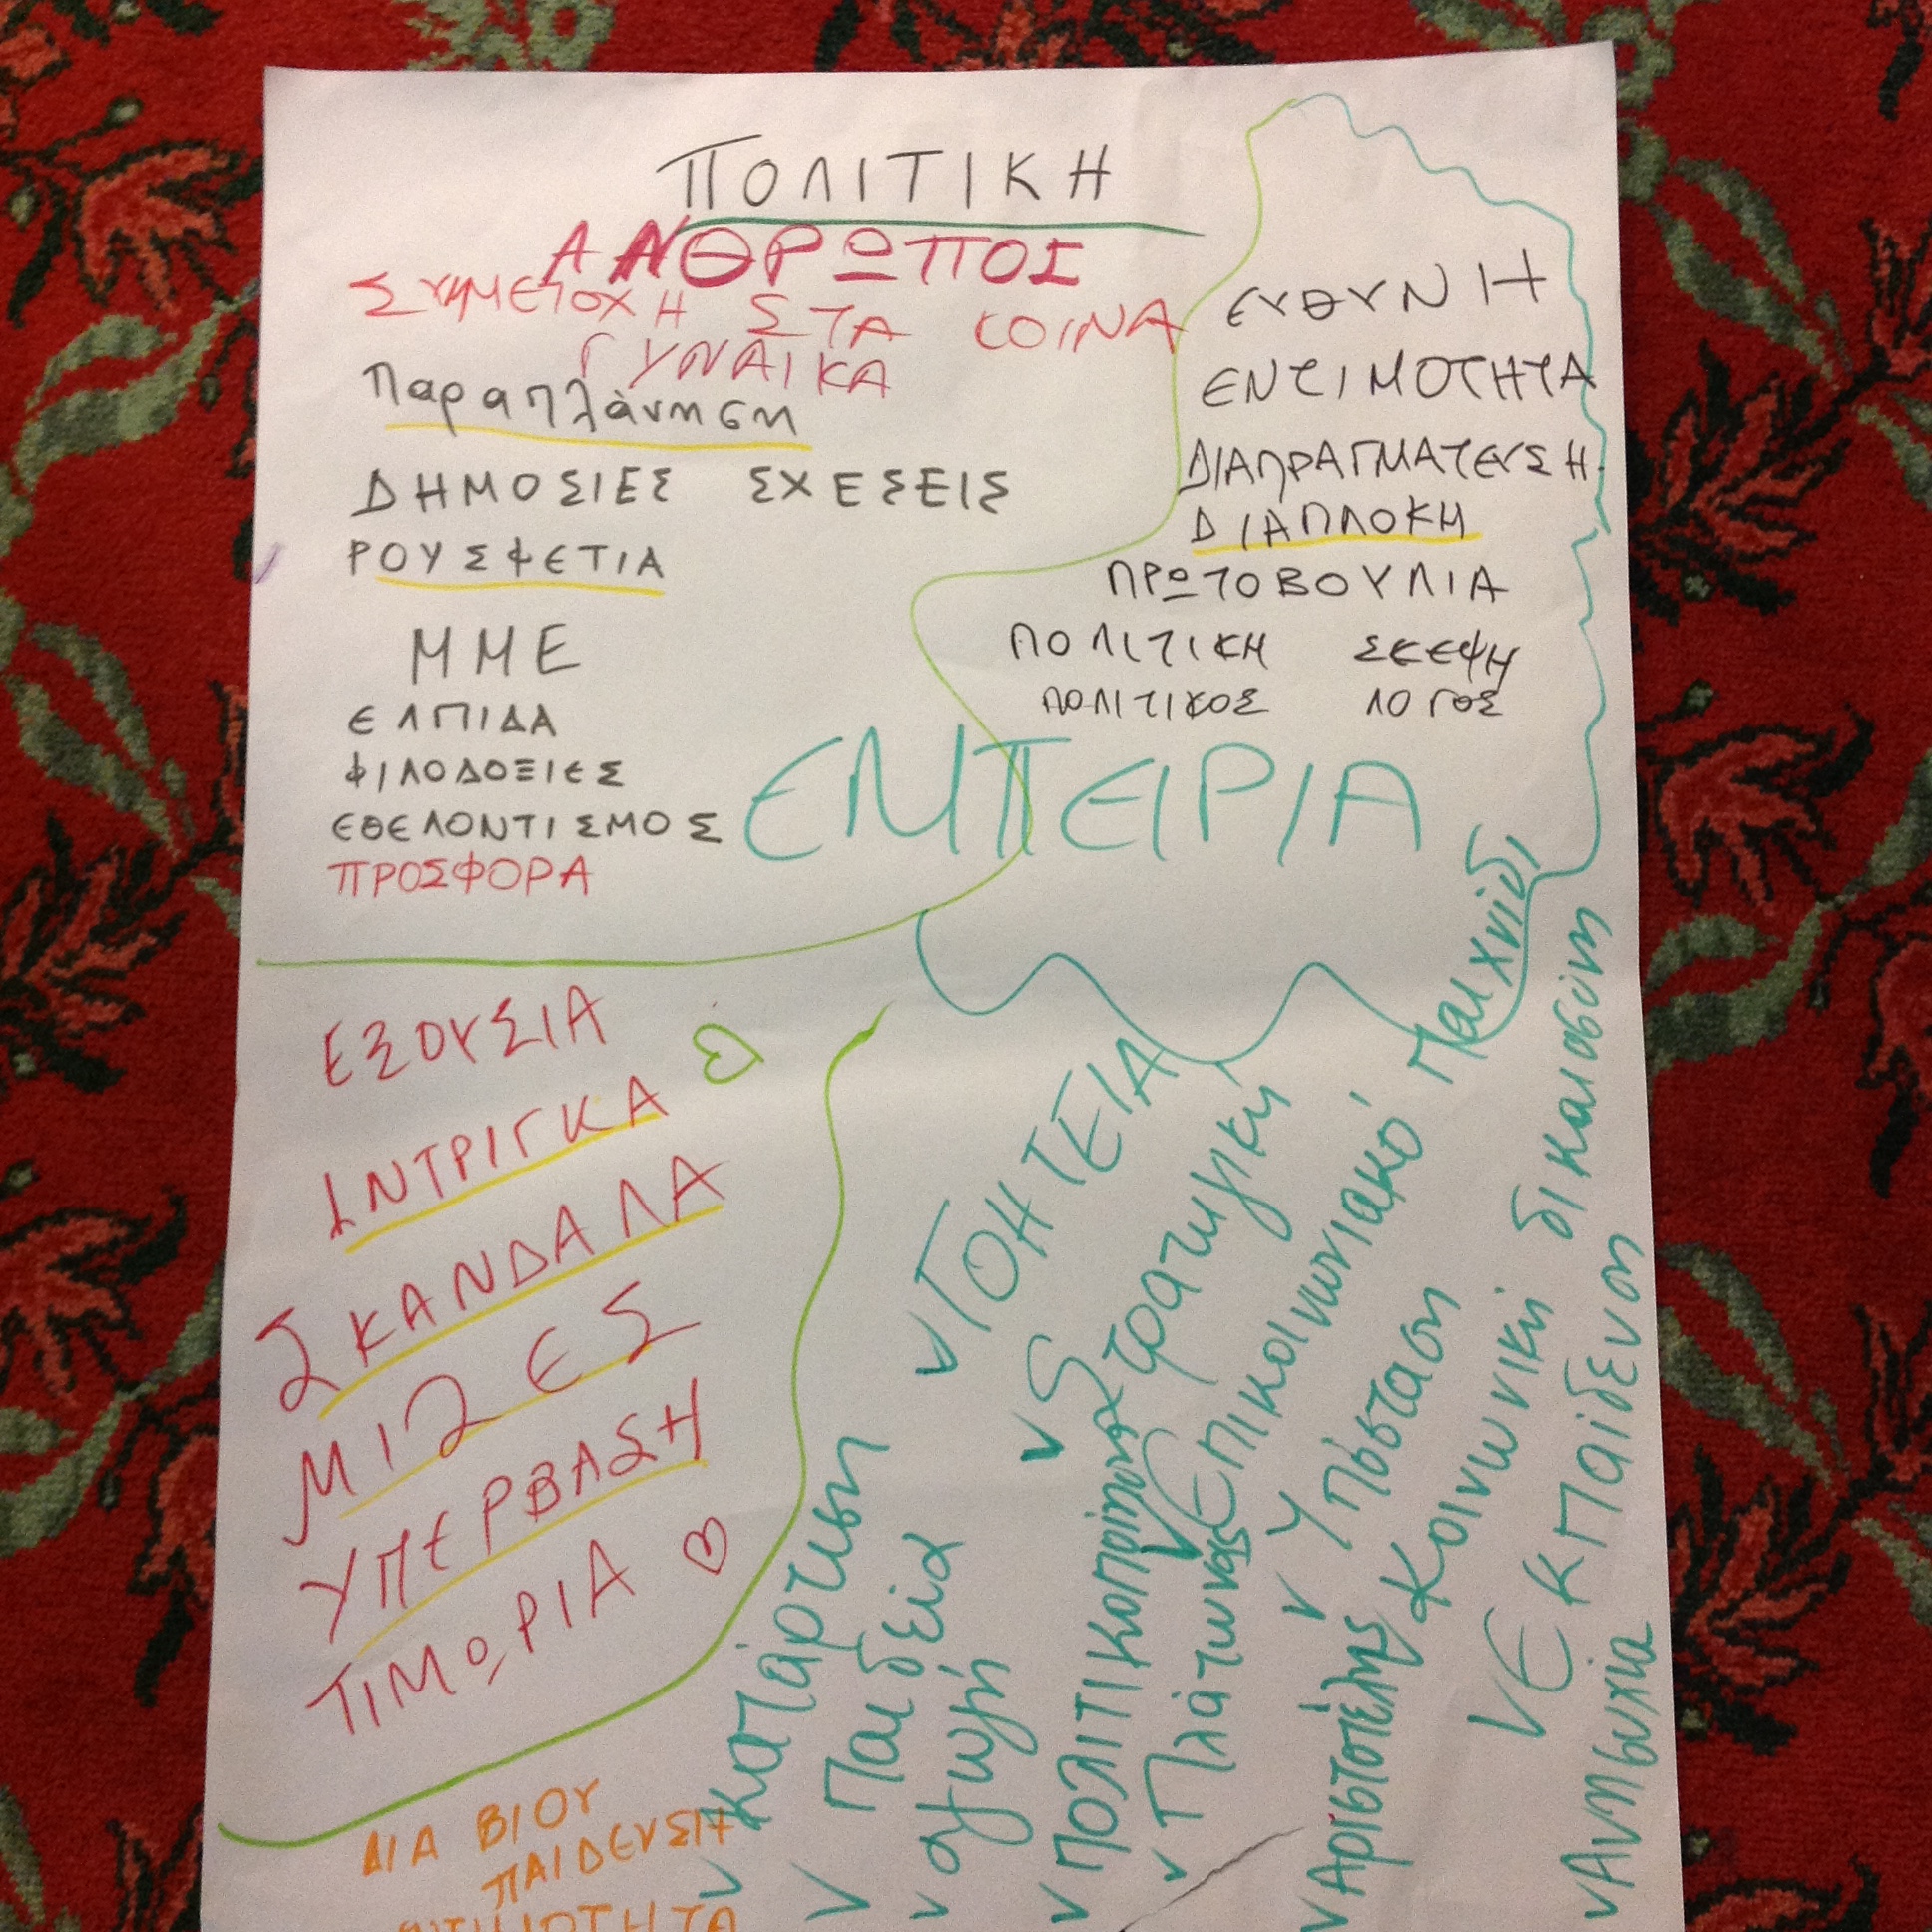 ΠΟΛΙΤΙΚΗ
ΑΝΘΡΩΠΟΣ
ΣΥΜΜΕΤΟΧΗ ΣΤΑ ΚΟΙΝΑ
ΓΥΝΑΙΚΑ
Παραπλάνηση
ΔΗΜΟΣΙΕΣ ΣΧΕΣΕΙΣ
ΡΟΥΣΦΕΤΙΑ
ΜΜΕ
ΕΛΠΙΔΑ
ΦΙΛΟΔΟΞΙΕΣ
ΕΘΕΛΟΝΤΙΣΜΟΣ
ΠΡΟΣΦΟΡΑ
ΕΥΘΥΝΗ
ΕΝΤΙΜΟΤΗΤΑ
ΔΙΑΠΡΑΓΜΑΤΕΥΣΗ
ΔΙΑΠΛΟΚΗ
ΠΡΩΤΟΒΟΥΛΙΑ
ΠΟΛΙΤΙΚΗ ΣΚΕΨΗ
ΠΟΛΙΤΙΚΟΣ ΛΟΓΟΣ
ΕΜΠΕΙΡΙΑ
ΕΞΟΥΣΙΑ
ΙΝΤΡΙΓΚΑ
ΣΚΑΝΔΑΛΑ
ΜΙΖΕΣ
ΥΠΕΡΒΑΣΗ
ΤΙΜΩΡΙΑ
ΔΙΑ ΒΙΟΥ
ΠΑΙΔΕΥΣΗ
Κατάρτιση
Παιδεία
αγωγή
ΓΟΗΤΕΙΑ
Στρατηγική
Επικοινωνιακό Παιχνίδι
Υπόσταση
Κοινωνική δικαιοσύνη
Εκπαίδευση
Πλάτωνας
Αριστοτέλης
Ανησυχία